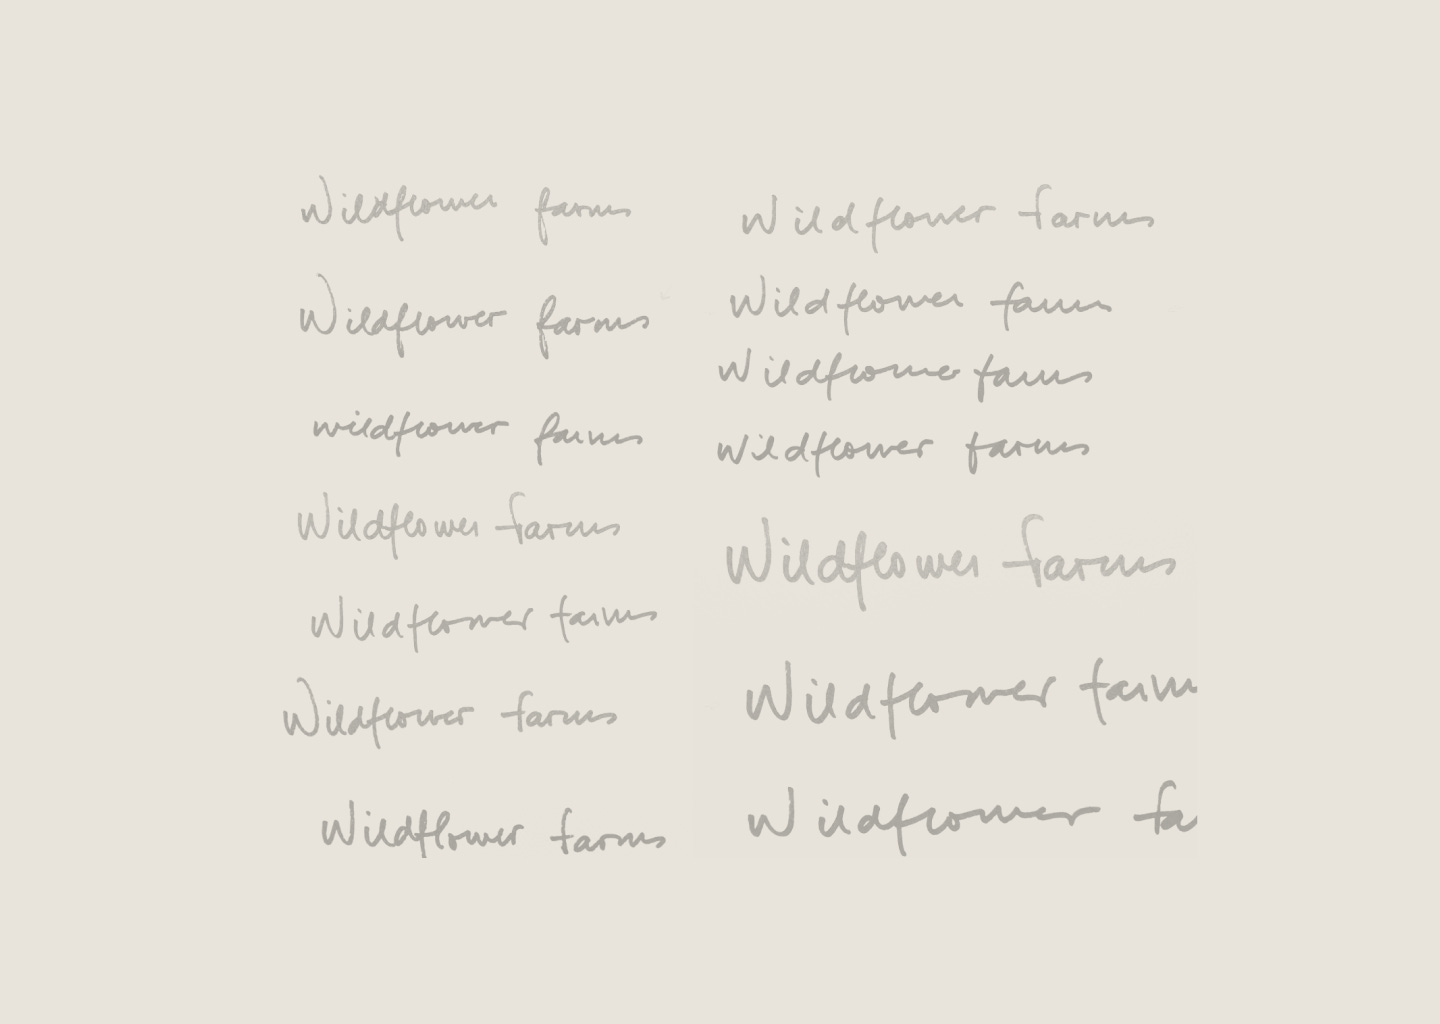 Wildflower farms
Wildflower farms
wildflower farms
Wildflower farms
Wildflower farms
Wildflower farms
Wildflower farms
Wildflower farms
Wildflower farms
Wildflower farms
Wildflower farms
Wildflower farms
Wildflower farm
Wildflower fa